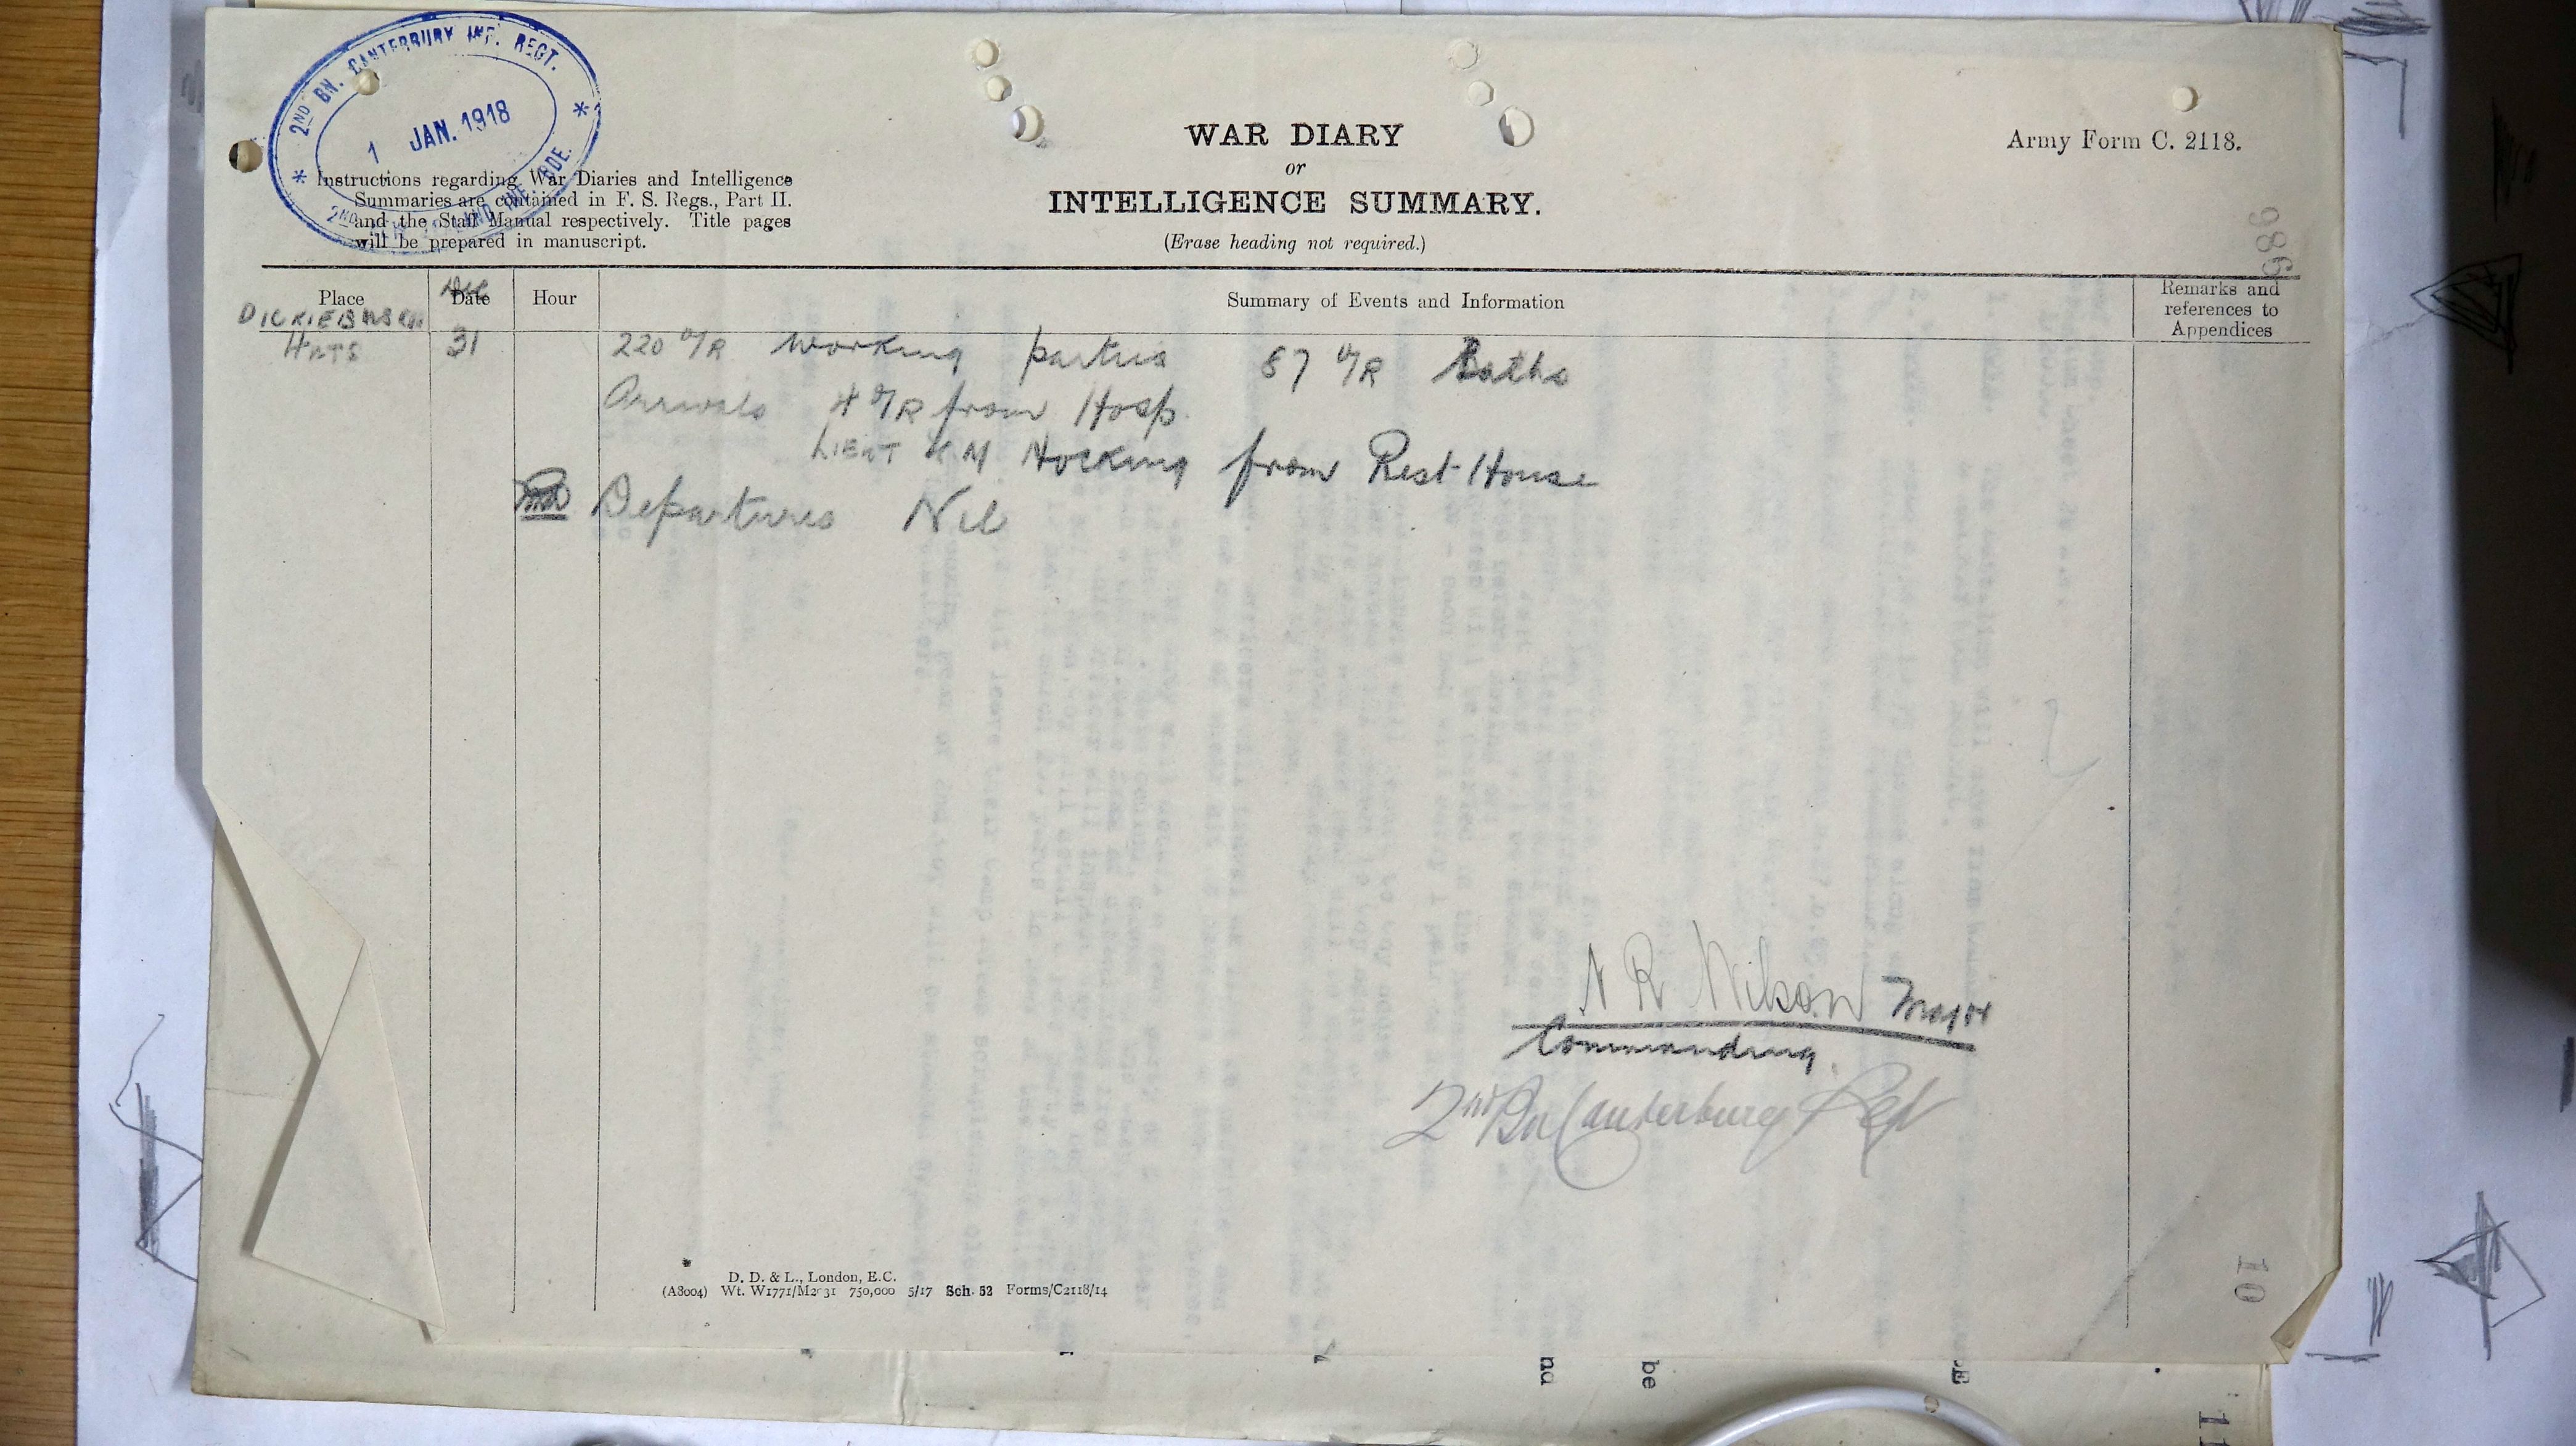 2ND BN. CANTERBURY INF. REGT.
1 JAN. 1918
Instructions regarding War Diaries and Intelligence
Summaries are contained in F. S. Regs., Part II.
and the Staff Manual respectively. Title pages
will be prepared in manuscript.
WAR DIARY
or
INTELLIGENCE SUMMARY.
(Erase heading not required.)
Army Form C. 2118.
986
Place
Dec
Date
Hour
Summary of Events and Information
Remarks and
references to
Appendices
DICKIEBUSCH
HUTS 31 220 O/R Working parties 87 O/R Baths
Arrivals 4 O/R from Hosp.
LIEUT K M Hocking from Rest House
Departures Nil
N R Wilson Major
Commanding
2nd Bn Canterbury Regt
D. D. & L., London, E.C.
(A8004) Wt. W1771/M2031 750,000 5/17 Sch. 52 Forms/C2118/14
10
nd
be
11